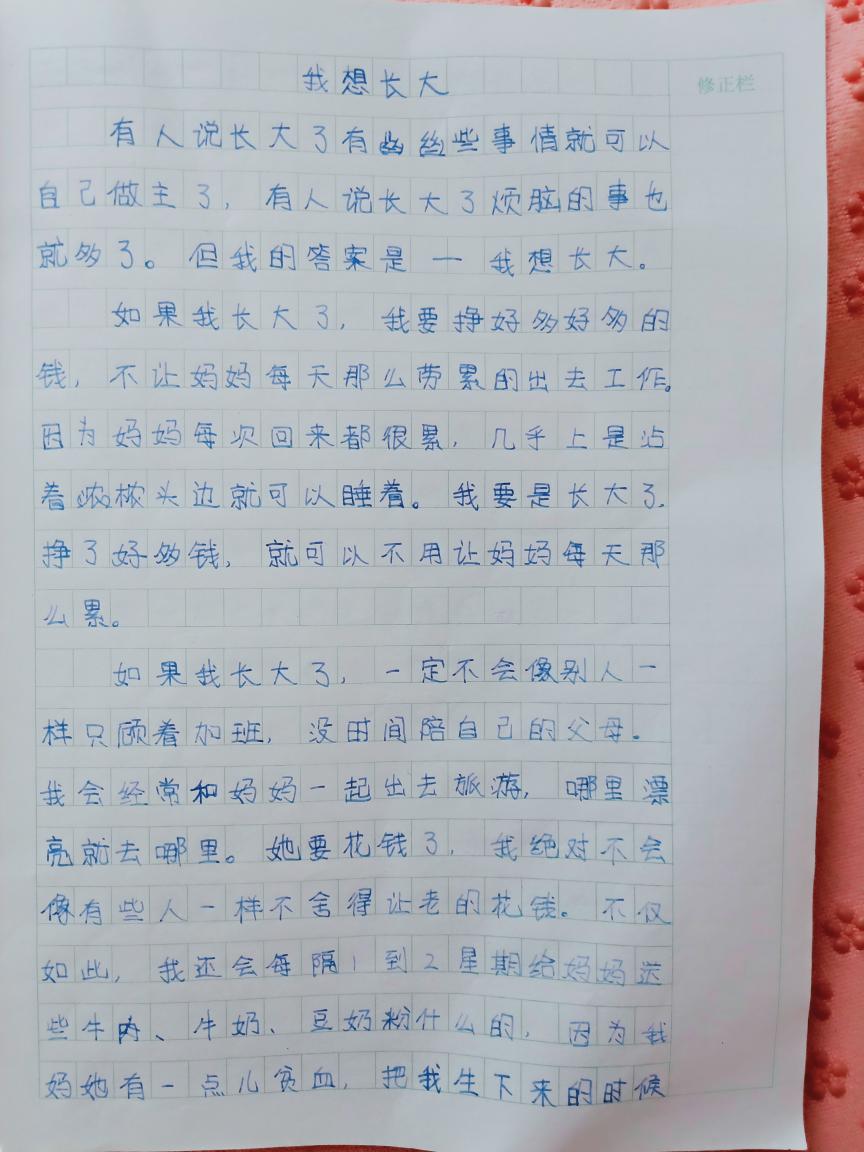 我想长大
修正栏
有人说长大了有些事情就可以
自己做主了，有人说长大了烦脑的事也
就多了。但我的答案是一我想长大。
如果我长大了，我要挣好多好多的
钱，不让妈妈每天那么劳累的出去工作。
因为妈妈每次回来都很累，几乎上是沾
着枕头边就可以睡着。我要是长大了，
挣了好多钱，就可以不用让妈妈每天那
么累。
如果我长大了，一定不会像别人一
样只顾着加班，没时间陪自己的父母。
我会经常和妈妈一起出去旅游，哪里漂
亮就去哪里。她要花钱了，我绝对不会
像有些人一样不舍得让老的花钱。不仅
如此，我还会每隔1到2星期给妈妈送
些牛肉、牛奶、豆奶粉什么的，因为我
妈她有一点儿贫血，把我生下来的时候